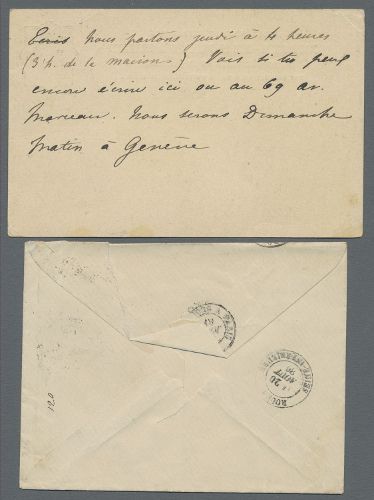 Ecris Nous partons jeudi à 4 heures
(3 h. de la maison) Vois si tu peux
encore écrire ici ou au 69 av.
Marceau. Nous serons Dimanche
Matin à Genève
120
20
AOUT